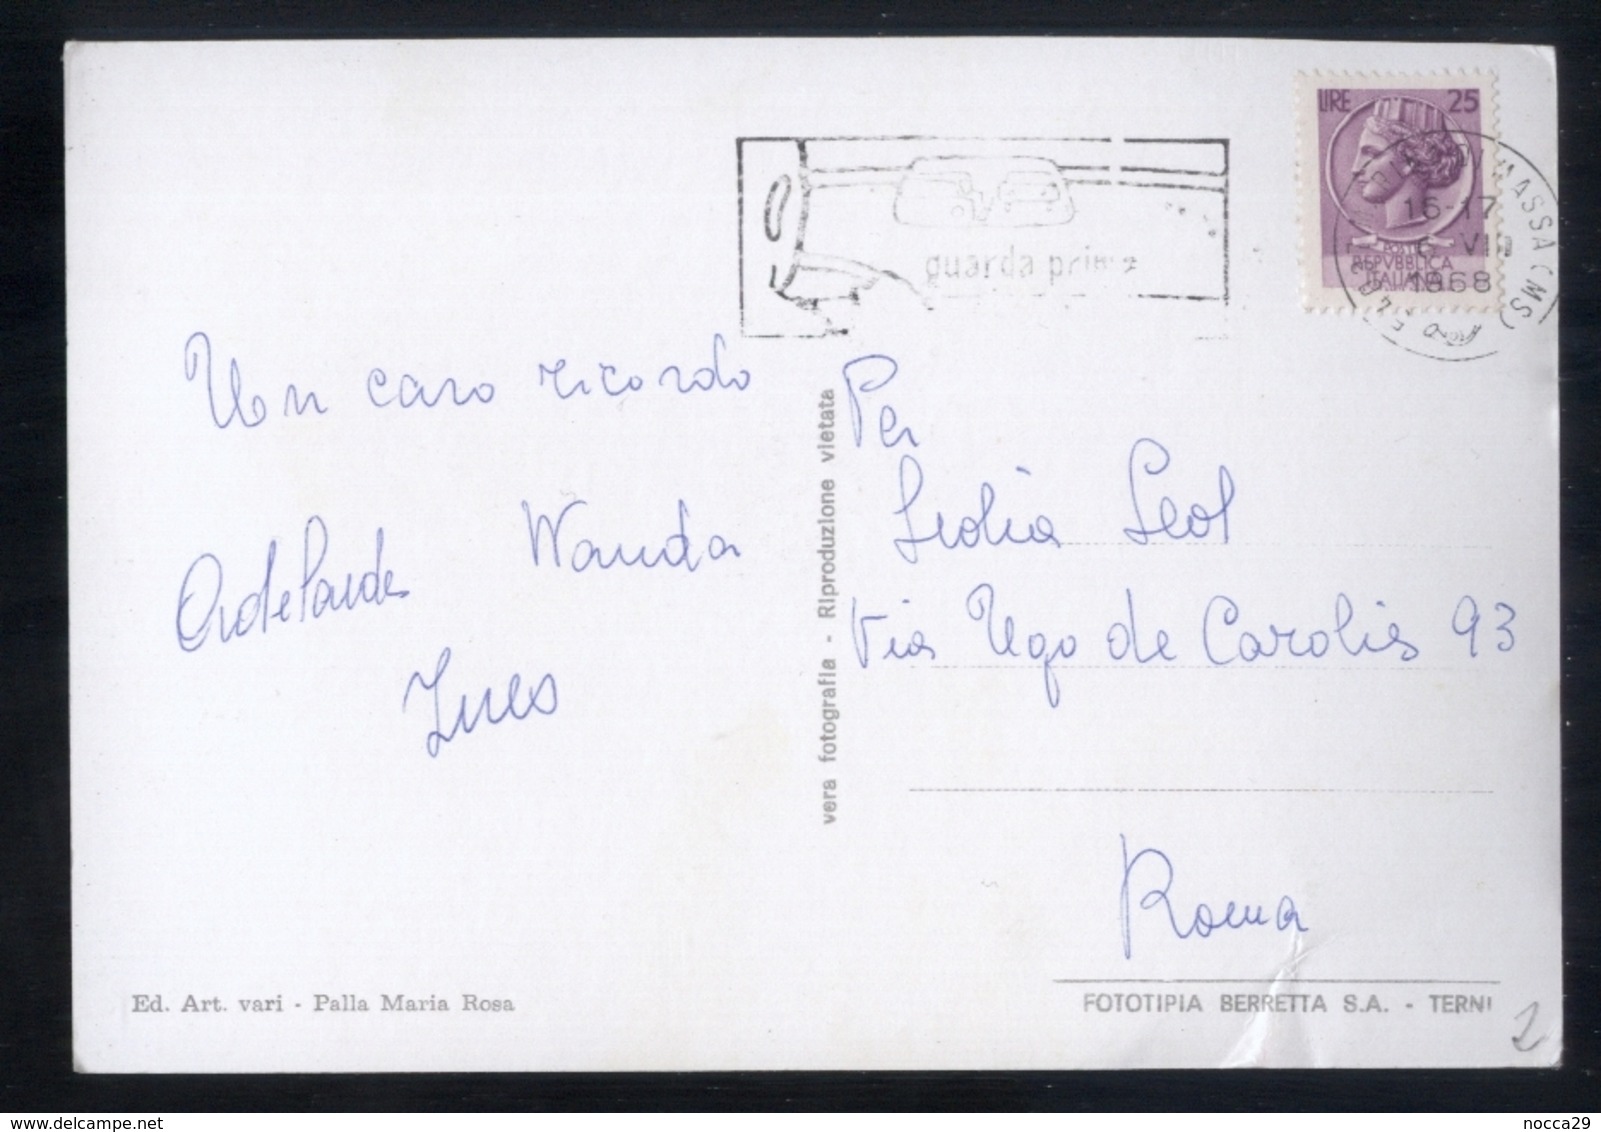 LIRE 25
POSTE
REPVBBLICA
ITALIANA
MASSA (MS)
16-17
VIII
1968
guarda prima
Un caro ricordo
Wanda
Adelaide
Ines
Per
Via Ugo de Carolis 93
Roma
vera fotografia - Riproduzione vietata
Ed. Art. vari - Palla Maria Rosa
FOTOTIPIA BERRETTA S.A. - TERNI
2
nocca29